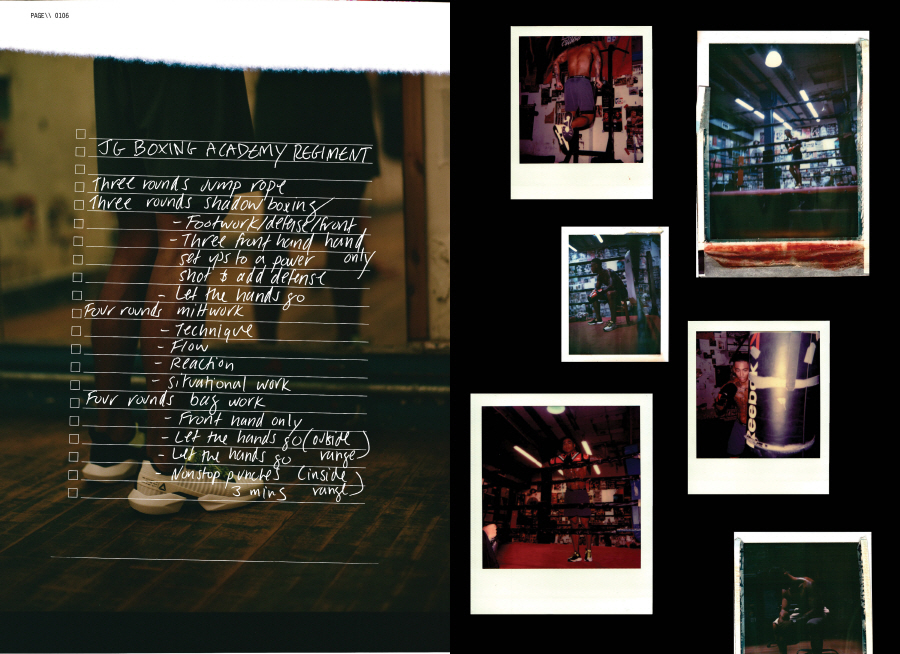 PAGE\\ 0106
JG BOXING ACADEMY REGIMENT
Three rounds Jump rope
Three rounds shadow boxing
- Footwork/defense/front
- Three front hand hand only
set ups to a power
shot & add defense
- Let the hands go
Four rounds mittwork
- Technique
- Flow
- Reaction
- situational work
Four rounds bag work
- Front hand only
- Let the hands go (outside
- Let the hands go range)
- Nonstop punches (inside
3 mins range)
Reebok